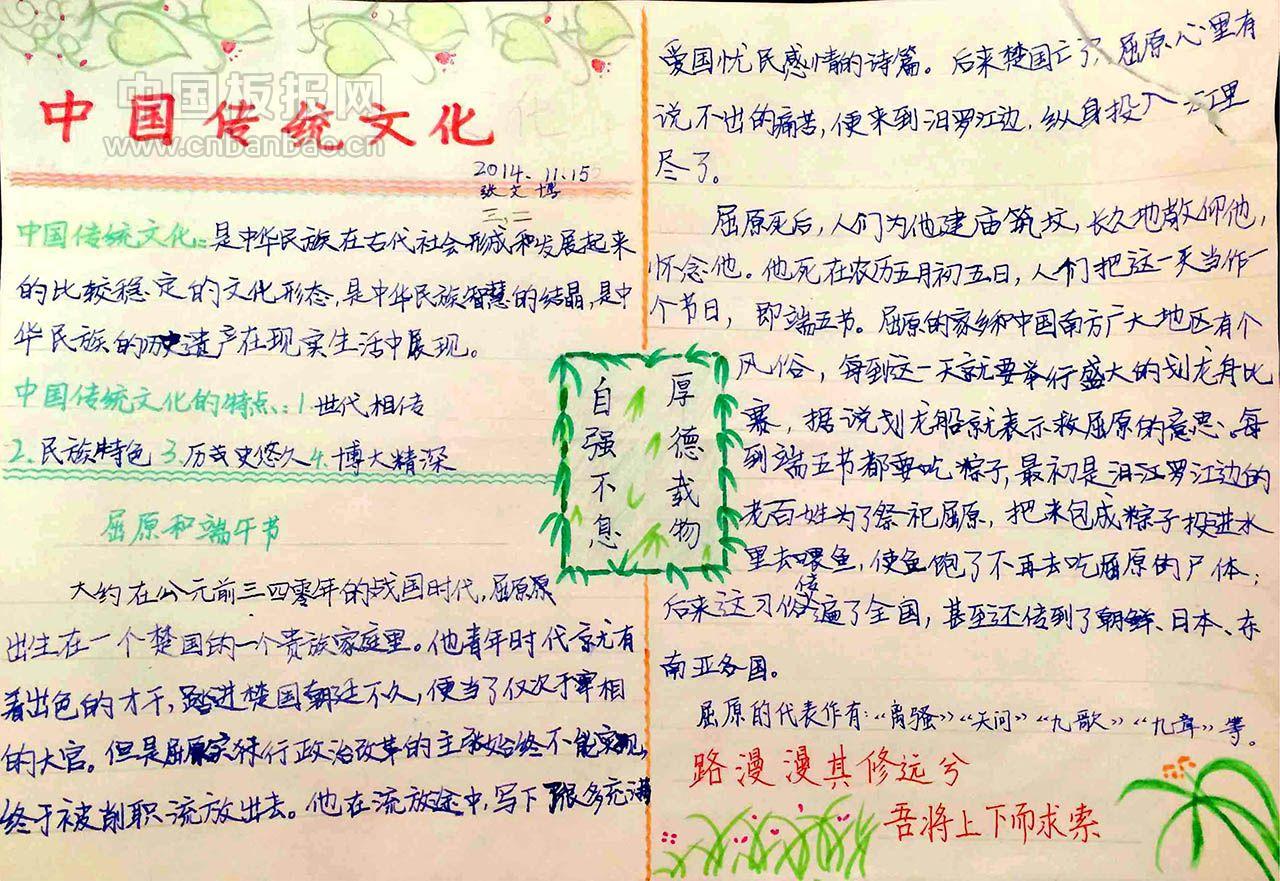 中国传统文化
中国板报网
www.cnbanbao.cn
2014.11.15
张文博
三,二
中国传统文化:是中华民族在古代社会形成和发展起来
的比较稳定的文化形态,是中华民族智慧的结晶,是中
华民族的历史遗产在现实生活中展现。
中国传统文化的特点:1.世代相传
2.民族特色 3.历史悠久 4.博大精深
屈原和端午节
大约在公元前三四零年的战国时代,屈原
出生在一个楚国的一个贵族家庭里。他青年时代就有
着出色的才干,踏进楚国朝廷不久,便当了仅次于宰相
的大官。但是屈原实行政治改革的主张始终不能实现,
终于被削职流放出去。他在流放途中,写下了很多充满
厚德载物
自强不息
爱国忧民感情的诗篇。后来楚国亡了,屈原心里有
说不出的痛苦,便来到汨罗江边,纵身投入江里
尽了。
屈原死后,人们为他建庙筑坟,长久地敬仰他,
怀念他。他死在农历五月初五日,人们把这一天当作一
个节日,即端五节。屈原的家乡和中国南方广大地区有个
风俗,每到这一天就要举行盛大的划龙舟比
赛,据说划龙船就表示救屈原的意思。每
到端五节都要吃粽子,最初是汨江罗江边的
老百姓为了祭祀屈原,把米包成粽子投进水
里去喂鱼,使鱼饱了不再去吃屈原的尸体;
后来这习俗传遍了全国,甚至还传到了朝鲜、日本、东
南亚各国。
屈原的代表作有:“离骚”“天问”“九歌”“九章”等。
路漫漫其修远兮
吾将上下而求索